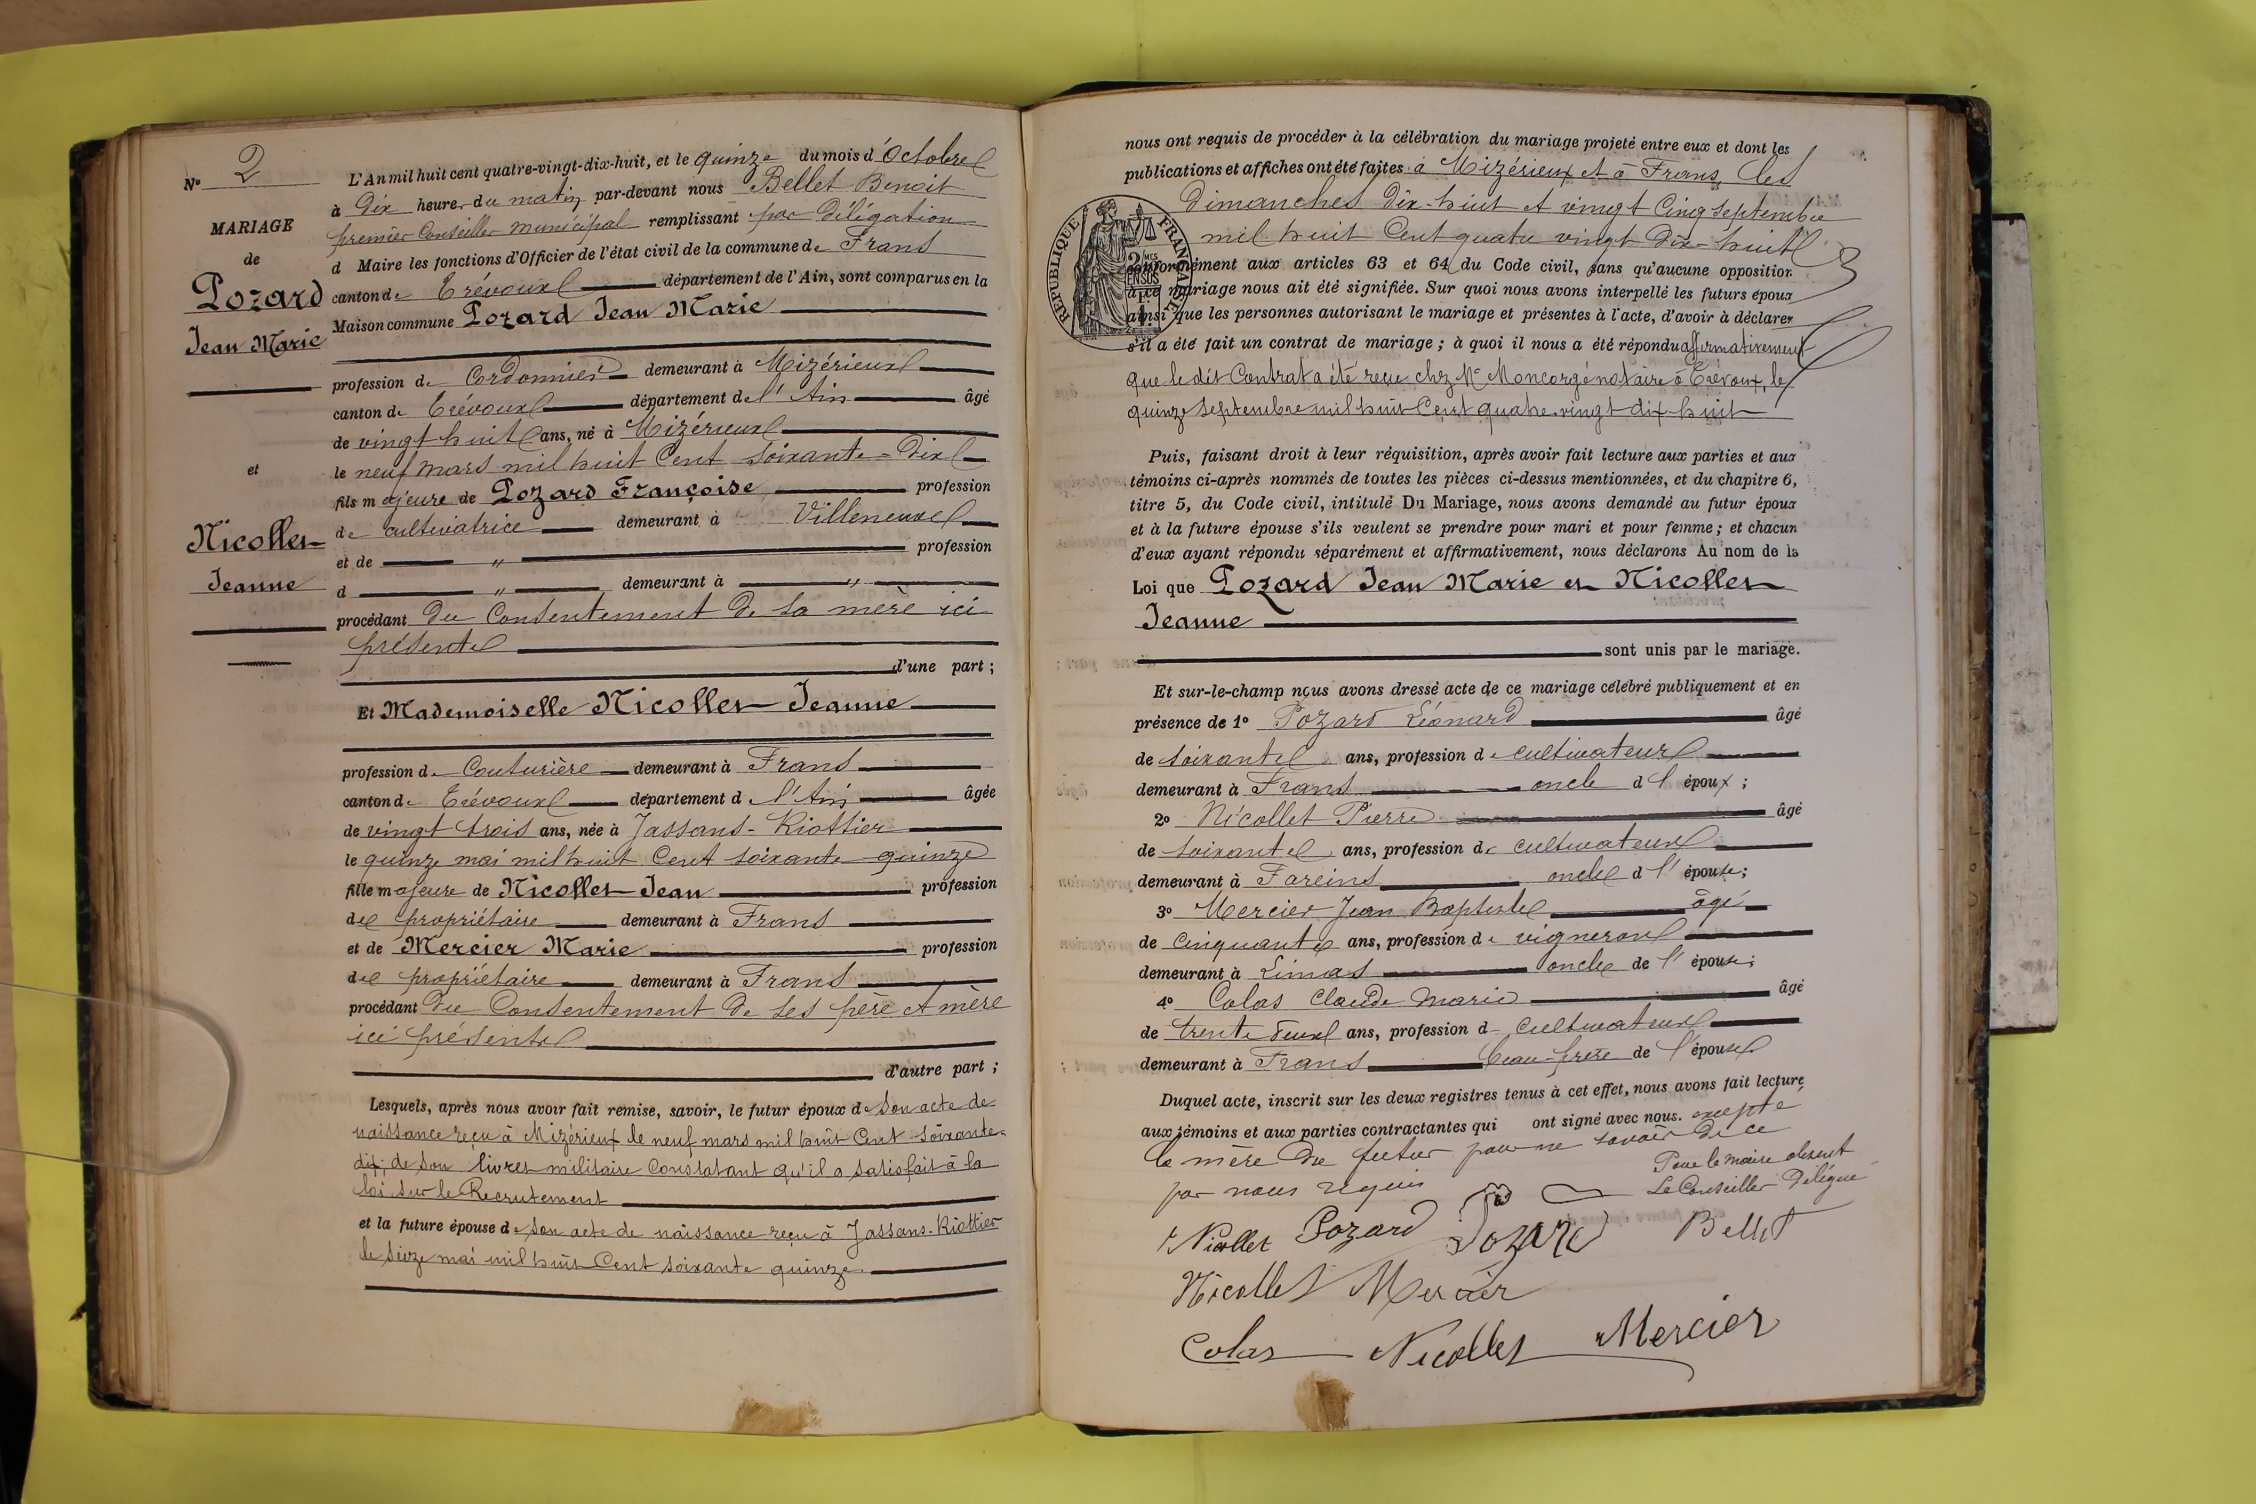 N° 2
MARIAGE
de
Pozard
Jean Marie
et
Nicollet
Jeanne
L'An mil huit cent quatre-vingt-dix-huit, et le quinze du mois d'Octobre
à Dix heures du matin par-devant nous Bellet Benoit
premier Conseiller municipal remplissant par Délégation
d Maire les fonctions d'Officier de l'état civil de la commune de Frans
canton de Trévoux département de l'Ain, sont comparus en la
Maison commune Pozard Jean Marie
profession de Cordonnier demeurant à Mizérieux
canton de Trévoux département de l'Ain âgé
de vingt huit ans, né à Mizérieux
le neuf mars mil huit Cent soixante-Dix
fils majeure de Pozard Françoise profession
de cultivatrice demeurant à Villeneuve
et de " profession
d " demeurant à "
procédant du Consentement de sa mère ici
présente
d'une part ;
Et Mademoiselle Nicollet Jeanne
profession de Couturière demeurant à Frans
canton de Trévoux département d l'Ain âgée
de vingt trois ans, née à Jassans-Riottier
le quinze mai mil huit Cent soixante quinze
fille majeure de Nicollet Jean profession
de propriétaire demeurant à Frans
et de Mercier Marie profession
de propriétaire demeurant à Frans
procédant du Consentement de ses père et mère
ici présents
d'autre part ;
Lesquels, après nous avoir fait remise, savoir, le futur époux de son acte de
naissance reçu à Mizérieux le neuf mars mil huit Cent soixante-
dix, de son livret militaire Constatant qu'il a satisfait à la
loi sur le Recrutement
et la future épouse de son acte de naissance reçu à Jassans-Riottier
le seize mai mil huit Cent soixante quinze.
nous ont requis de procéder à la célébration du mariage projeté entre eux et dont les
publications et affiches ont été faites à Mizérieux et à Frans, les
Dimanches Dix-huit et vingt Cinq septembre
mil huit Cent quatre vingt Dix-huit
conformément aux articles 63 et 64 du Code civil, sans qu'aucune opposition
à ce mariage nous ait été signifiée. Sur quoi nous avons interpellé les futurs époux
ainsi que les personnes autorisant le mariage et présentes à l'acte, d'avoir à déclarer
s'il a été fait un contrat de mariage ; à quoi il nous a été répondu affirmativement
que le dit Contrat a été reçu chez Me Moncorgé notaire à Trévoux, le
quinze septembre mil huit Cent quatre-vingt dix huit
RÉPUBLIQUE FRANÇAISE
Puis, faisant droit à leur réquisition, après avoir fait lecture aux parties et aux
témoins ci-après nommés de toutes les pièces ci-dessus mentionnées, et du chapitre 6,
titre 5, du Code civil, intitulé Du Mariage, nous avons demandé au futur époux
et à la future épouse s'ils veulent se prendre pour mari et pour femme ; et chacun
d'eux ayant répondu séparément et affirmativement, nous déclarons Au nom de la
Loi que Pozard Jean Marie et Nicollet
Jeanne
sont unis par le mariage.
Et sur-le-champ nous avons dressé acte de ce mariage célébré publiquement et en
présence de 1° Pozard Léonard âgé
de soixante ans, profession de cultivateur
demeurant à Frans oncle d l'époux ;
2° Nicollet Pierre âgé
de soixante ans, profession de cultivateur
demeurant à Fareins oncle d l'épouse ;
3° Mercier Jean Baptiste âgé
de Cinquante ans, profession de vigneron
demeurant à Limas oncle de l'épouse ;
4° Colas Claude Marie âgé
de trente deux ans, profession d Cultivateur
demeurant à Frans beau-frère de l'épouse
Duquel acte, inscrit sur les deux registres tenus à cet effet, nous avons fait lecture
aux témoins et aux parties contractantes qui ont signé avec nous. excepté
la mère du futur pour ne savoir de ce
par nous requis
Pour le maire absent
Le Conseiller Délégué
Nicollet Pozard Pozard Bellet
Nicollet Mercier
Colas Nicollet Mercier